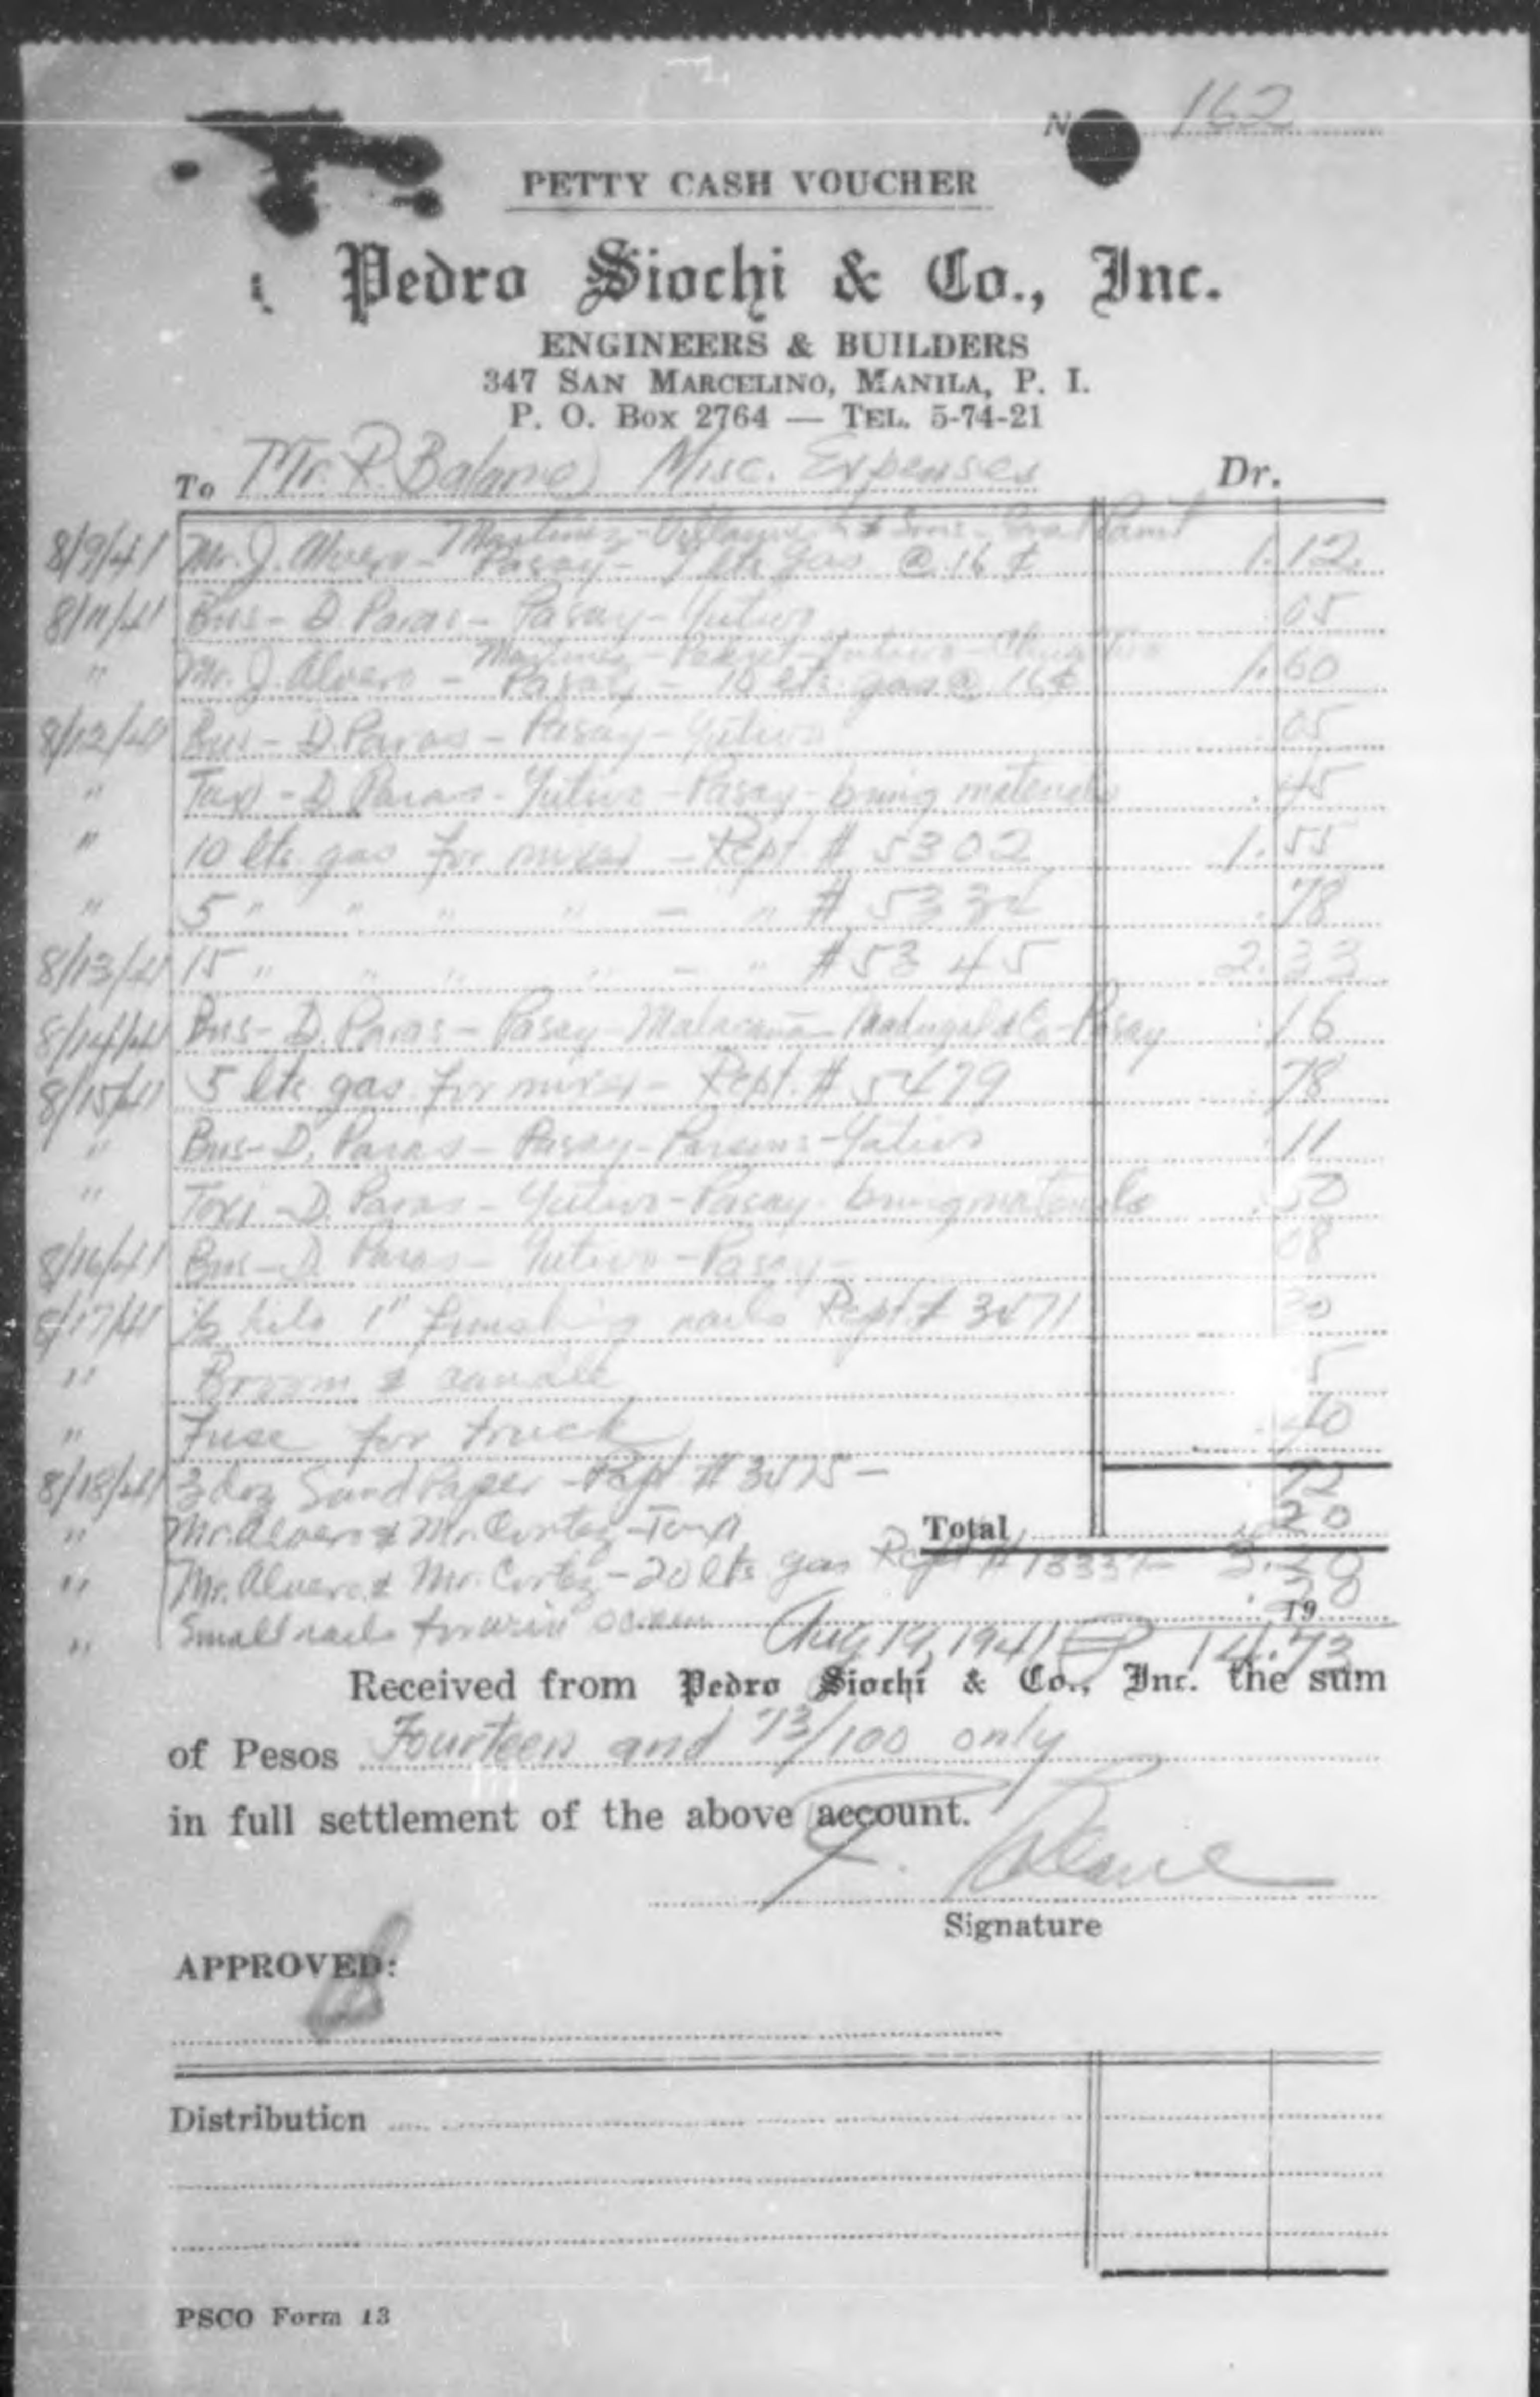 No. 162
PETTY CASH VOUCHER
Pedro Siochi & Co., Inc.
ENGINEERS & BUILDERS
347 SAN MARCELINO, MANILA, P. I.
P. O. BOX 2764 — TEL. 5-74-21
To Mr. P. Misc. Expenses Dr.
Martinez - & Sons -
8/9/41 Mr. J. Alvero - Pasay - 7 lts gas @ 16 ¢ 1.12
8/11/41 Bus - D. Paras - Pasay - Yutivo .05
Martinez - - Yutivo -
" Mr. J. Alvero - Pasay - 10 lts. gas @ 16¢ 1.60
8/12/41 Bus - D. Paras - Pasay - Yutivo .05
" Taxi - D. Paras - Yutivo - Pasay - bring materials .45
" 10 lts. gas for mixer - Rcpt. # 5302 1.55
" 5 " " " " - " # 5334 .78
8/13/41 15 " " " " - " # 5345 2.33
8/14/41 Bus - D. Paras - Pasay - Malacañan - Madrigal & Co - Pasay .16
8/15/41 5 lts gas for mixer - Rcpt. # 5479 .78
" Bus - D. Paras - Pasay - Parsons - Yutivo .11
" Taxi - D. Paras - Yutivo - Pasay - bring materials .50
8/16/41 Bus - D. Paras - Yutivo - Pasay - 08
8/17/41 ½ kilo 1" finishing nails Rcpt. # 3471
" Broom & 5
" Fuse for truck
8/18/41 3 doz Sand Paper - Rcpt # - 72
" Mr. Alvero & Mr. Cortez - Taxi 20
Total
" Mr. Alvero & Mr. Cortez - 20 lts gas Rcpt # 3.20
" Small nails for screen .20
Aug 19, 1941 19 14.73
Received from Pedro Siochi & Co., Inc. the sum
of Pesos Fourteen and 73/100 only
in full settlement of the above account.
Signature
APPROVED:
Distribution
PSCO Form 13